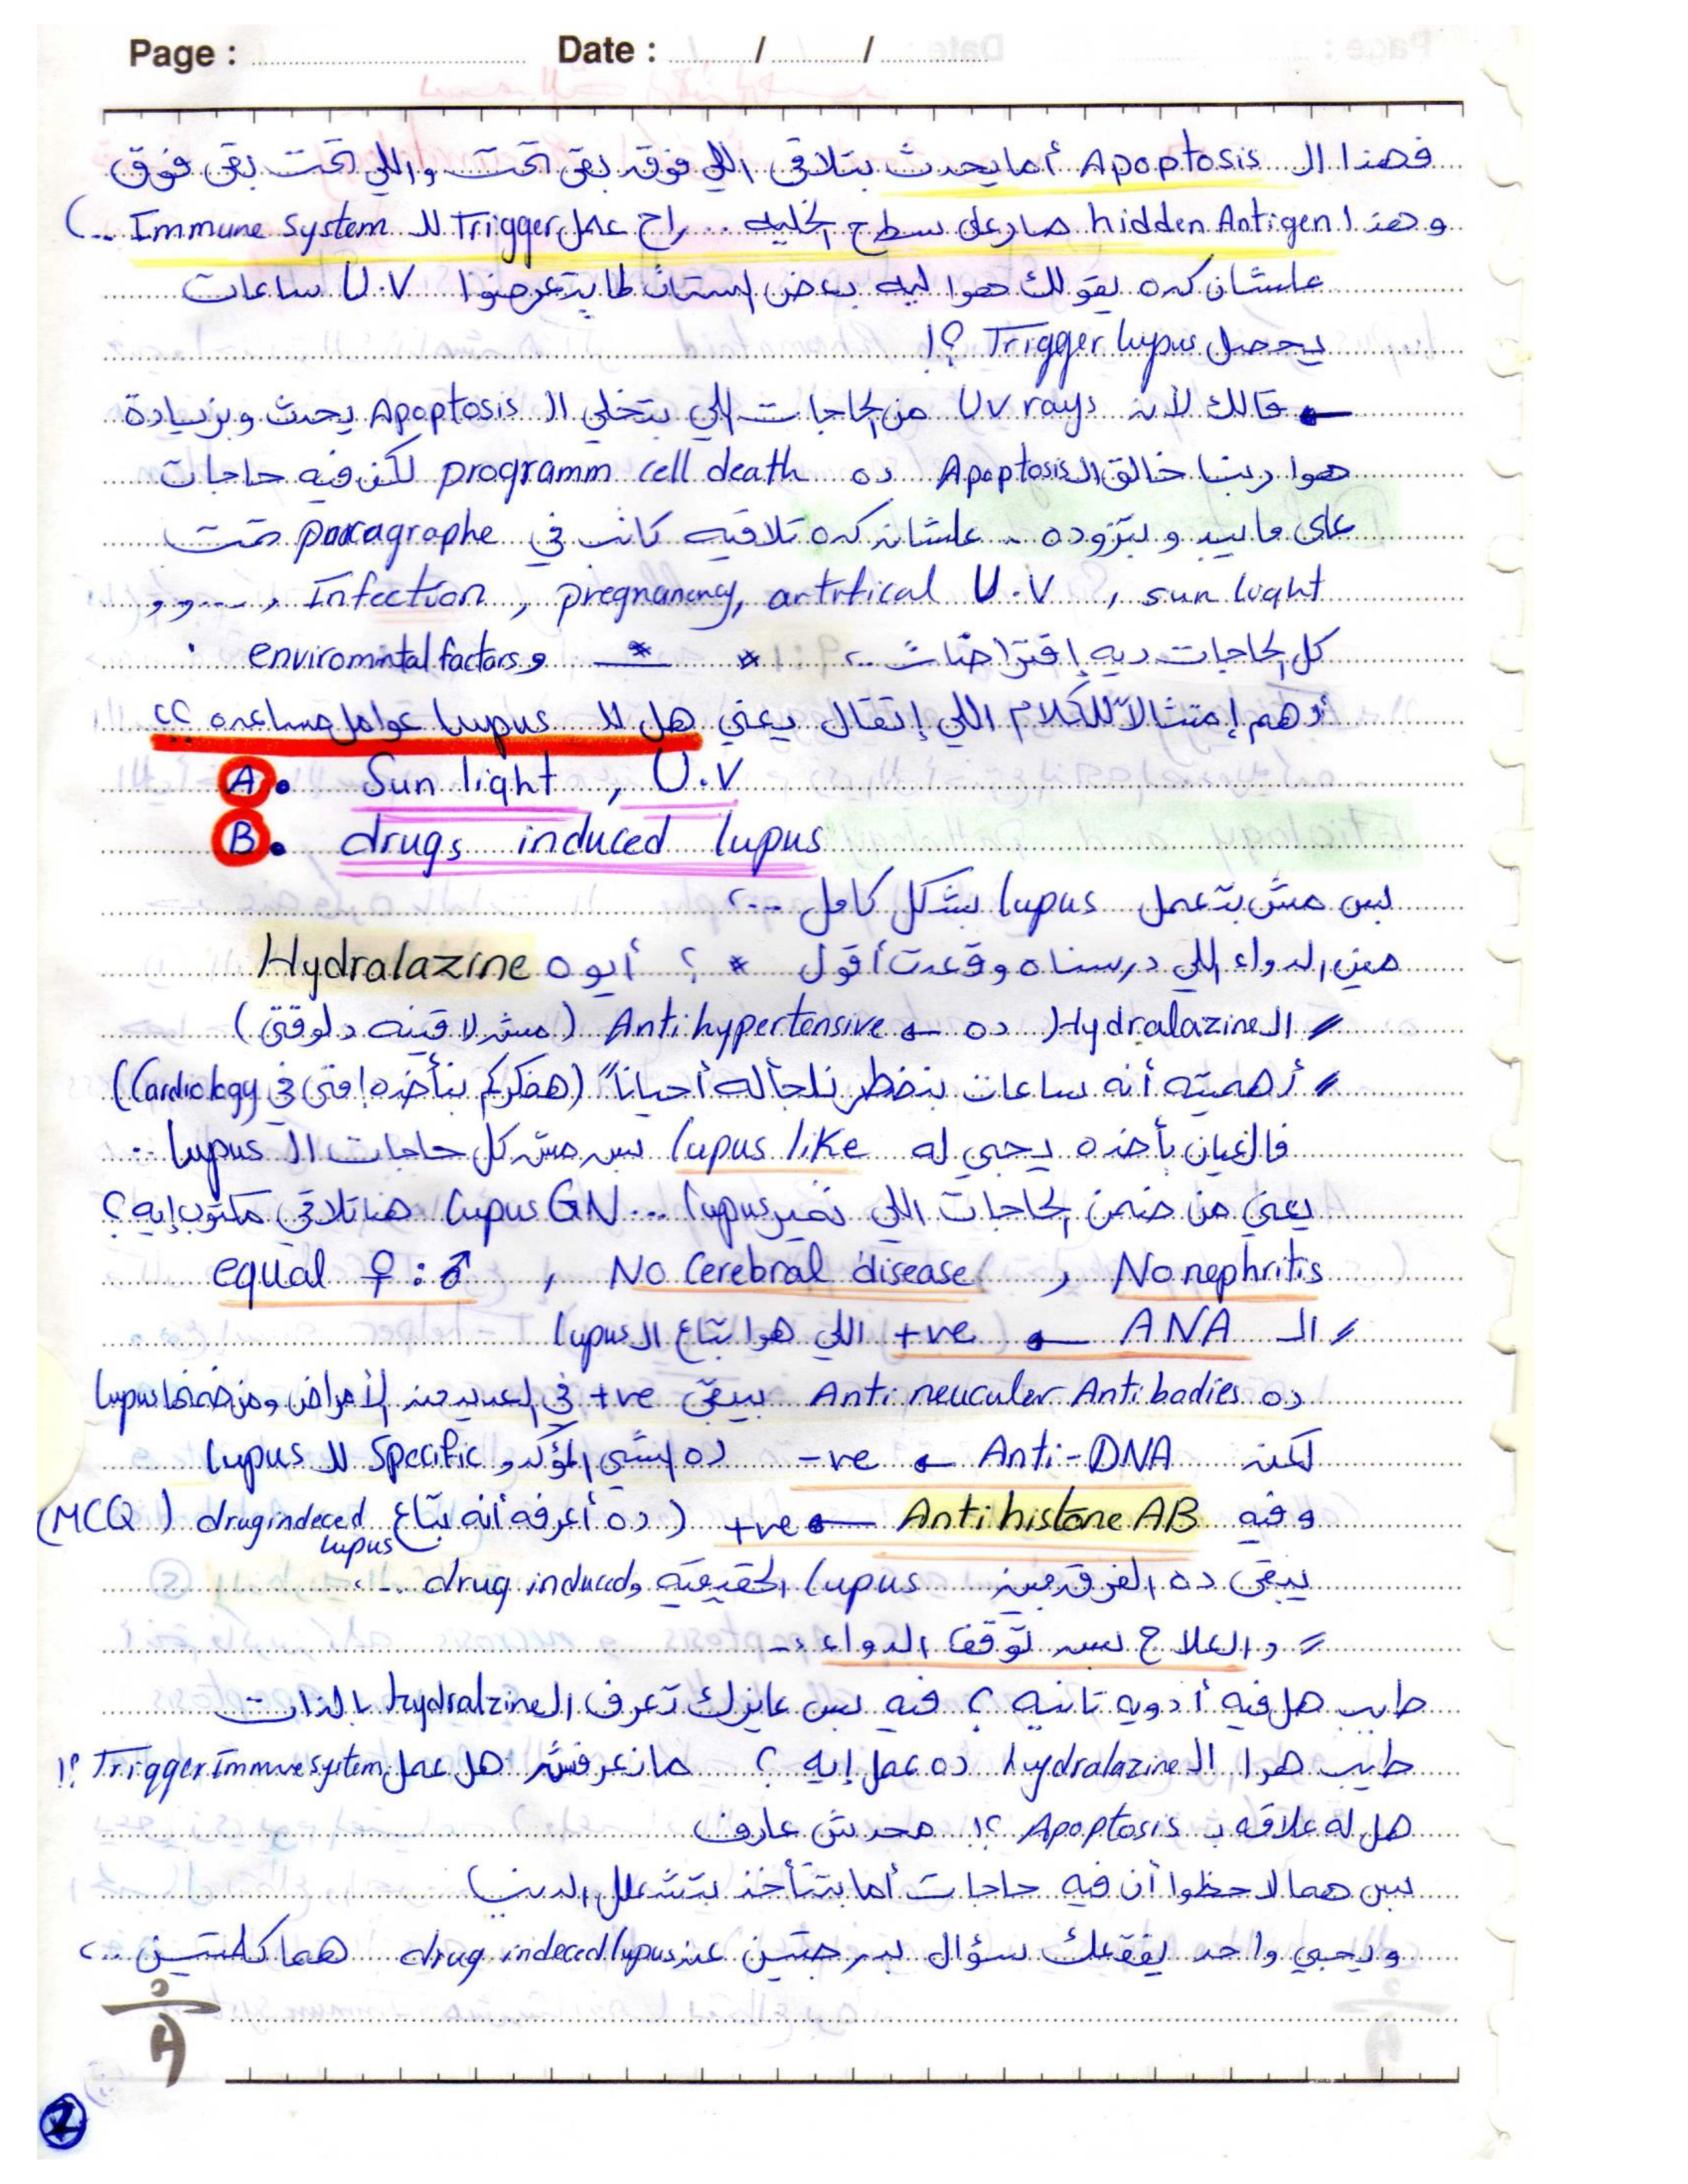 Page : Date : / /
فهذا الـ Apoptosis أما يحدث بتلاقى اللي فوق بقى تحت واللي تحت بقى فوق
وهذا hidden Antigen صار على سطح الخليه .. راح عمل Trigger للـ Immune system ..)
علشان كده يقولك هوا ليه بعض الستات لما يتعرضوا U.V ساعات
يحصل Trigger lupus ؟!
قالك لأنه UV rays من الحاجات اللي بتخلي الـ Apoptosis يحدث وبزيادة
هوا ربنا خالق الـ Apoptosis ده programm cell death لكن فيه حاجات
على ما يبد وبتزوده .. علشان كده تلاقيه كاتب في paragraphe تحت
sun light , U.V artrtical , pregnanency , Infection , .... و و
كل الحاجات ديه إفتراضات .. * * و enviromintal factors .
أهم إمتثالاً للكلام اللي إتقال يعني هل للـ lupus عوامل مساعده ؟؟
A. Sun light , U.V
B. drugs induced lupus
بس مش بتعمل lupus بشكل كامل ...؟
مين الدواء اللي درسناه وقعدت أقول * ؟ أيوه Hydralazine
// الـ Hydralazine ده ← Antihypertensive (مش لاقينه دلوقتى)
// أهميته أنه ساعات بنضطر نلجأله أحياناً (هفكركم بنأخده إمتى في Cardiology))
فالعيان بأخده يجي له lupus like بس مش كل حاجات الـ lupus ..
يعني من ضمن الحاجات اللي تميز lupus ... lupus GN هنا تلاقى مكتوب إيه ؟
No nephritis , No Cerebral disease , equal ♀ : ♂
// الـ ANA ← +ve اللي هوا بتاع الـ lupus
ده Anti neucular Anti badies بيبقى +ve في العديد من الأمراض ومن ضمنها lupus
لكنه Anti-DNA ← -ve ده الشي المؤكد و Specific للـ lupus
وفيه Antihistone AB ← +ve (ده أعرفه أنه بتاع drug indeced lupus (MCQ
يبقى ده الفرق بين lupus الحقيقيه و drug induced ..
// والعلاج بس توقف الدواء :-
طيب هل فيه أدويه تانيه ؟ فيه بس عايزك تعرف الـ hydralzine بالذات
طيب هوا الـ hydralazine ده عمل إيه ؟ مانعرفش هل عمل Trigger Immune system ؟!
هل له علاقه بـ Apoptosis ؟! محدش عارف
بس هما لاحظوا أن فيه حاجات أما بتتأخذ بتشعلل الدنيا
ويجي واحد يفقعلك سؤال بدرجتين عن drug indeced lupus هما كلمتين ..؟
2